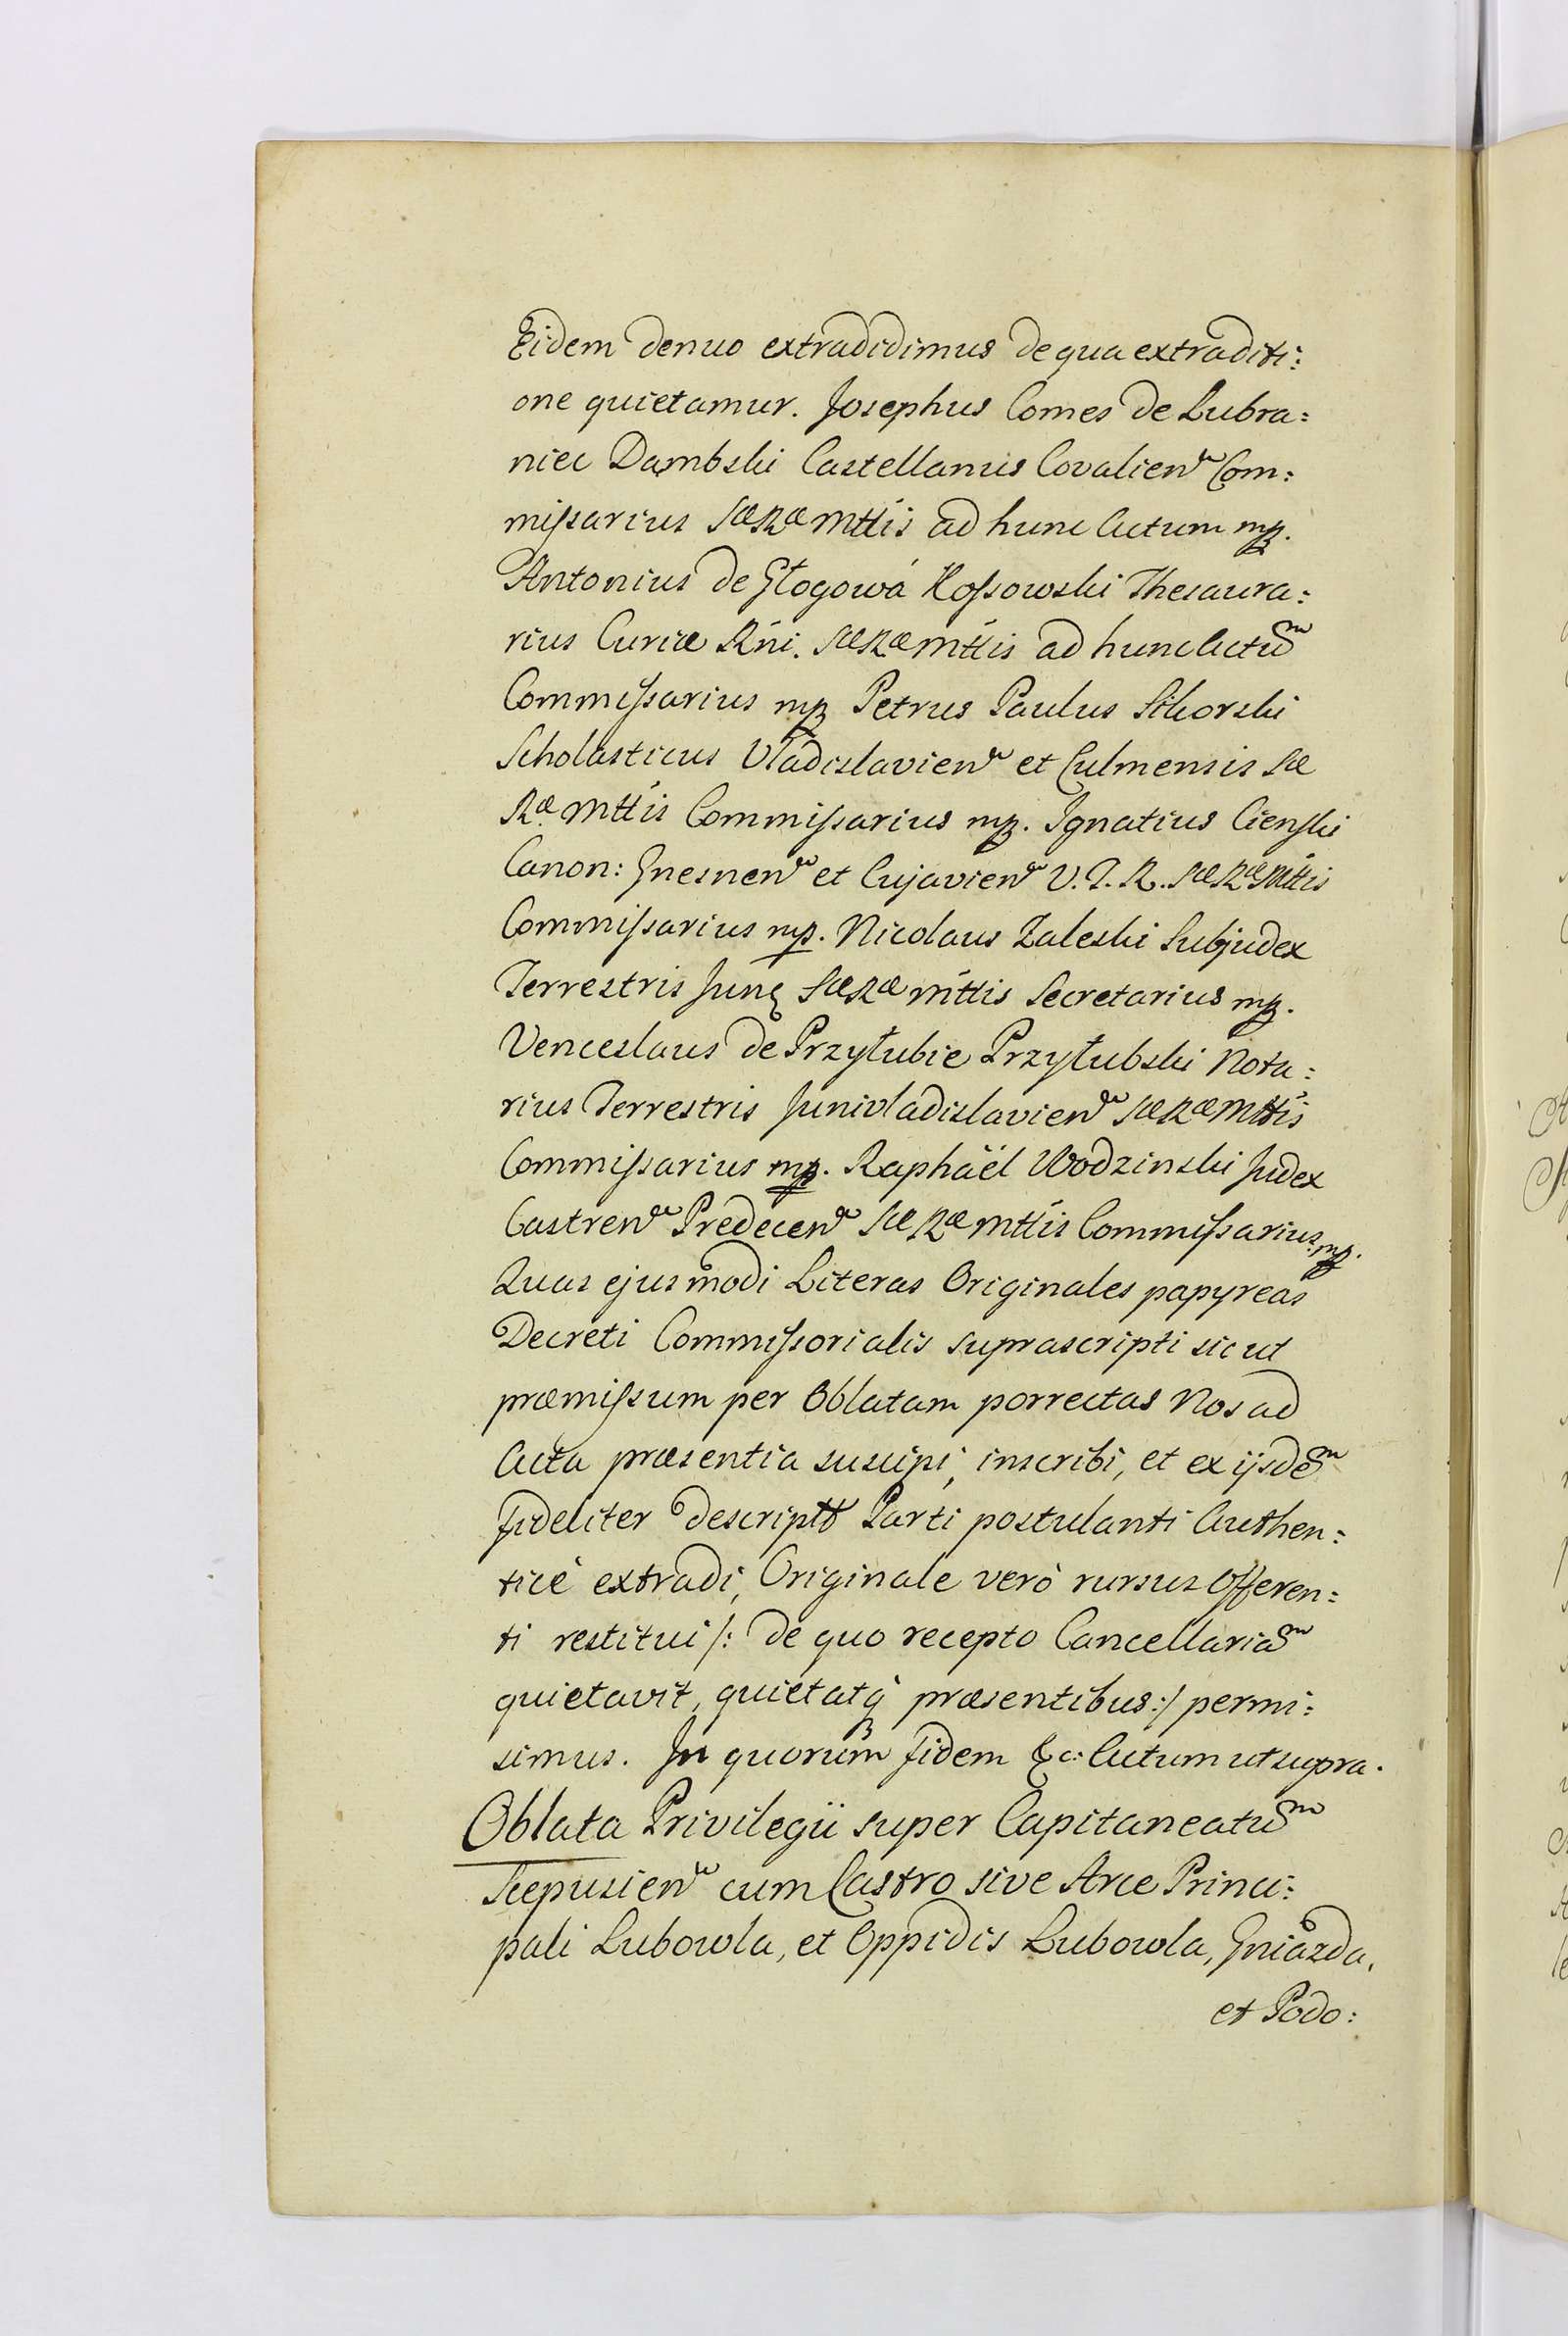 Eidem denuo extradidimus de qua extraditi:
one quietamur. Josephus Comes de Lubra:
niec Dąmbski Castellanus Covalien Com:
missarius Sæ Ræ Mttis ad hunc Actum mp.
Antonius de Głogowá Kossowski Thesaura:
rius Curiæ Rni. Sæ Ræ Mttis ad hunc Actum
Commissarius mp Petrus Paulus Sikorski
Scholasticus Vladislavien et Culmensis Sæ
Ræ Mttis Commissarius mp. Ignatius Cienski
Canon: Gnesnen et Cujavien V. I. R. Sæ Ræ Mttis
Commissarius mp. Nicolaus Zaleski Subjudex
Terrestris Sæ Ræ Mttis Secretarius mp.
Venceslaus de Przyłubie Przyłubski Nota:
rius Terrestris Junivladislavien Sæ Ræ Mttis
Commissarius mp. Raphäel Wodzinski Judex
Castren Predecen Sæ Ræ Mttis Commissarius mp.
Quas ejusmodi Literas Originales papyreas
Decreti Commissorialis suprascripti sicut
præmissum per Oblatam porrectas Nos ad
Acta præsentia suscipi, inscribi, et ex ijsdem
fideliter descriptt Parti postulanti Authen:
ticè extradi, Originale verò rursus Offeren:
ti restitui /: de quo recepto Cancellariam
quietavit, quietatq præsentibus :/ permi:
simus. In quorum fidem &c: Actum ut supra.
Oblata Privilegii super Capitaneatum
Scepusien cum Castro sive Arce Princi:
pali Lubowla, et Oppidis Lubowla, Gniazda,
et Podo: